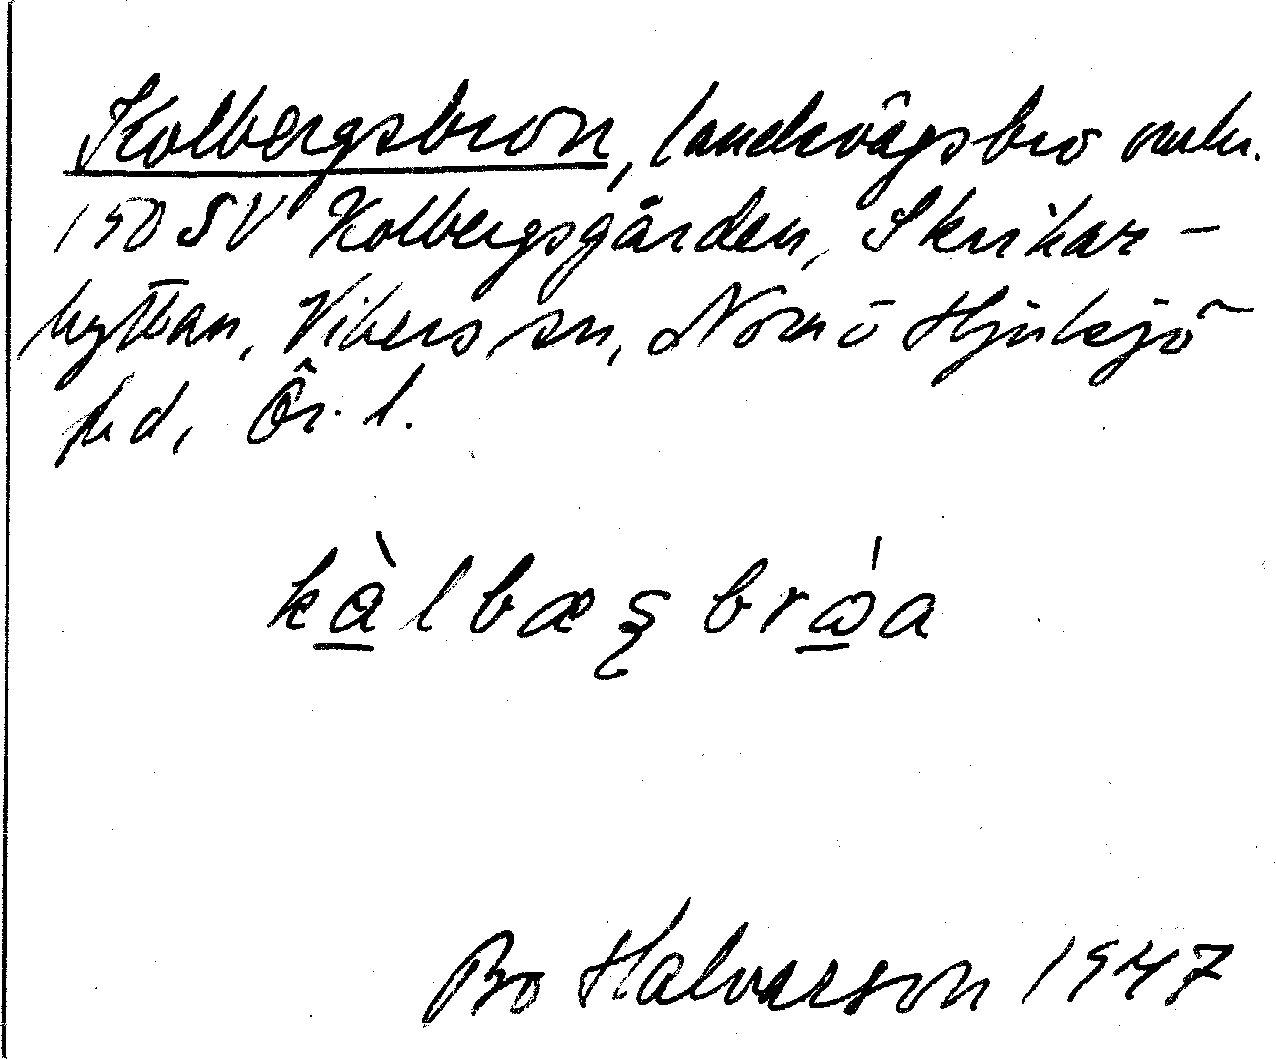 Kolbergsbron, landsvägsbro omkr.
150 SV Kolbergsgården, Skrikar-
hyttan, Vikers sn, Nora o Hjulsjö
hd, Ör. l.
kàlbæʂbrɷ́a
Bo Halvarson 1947